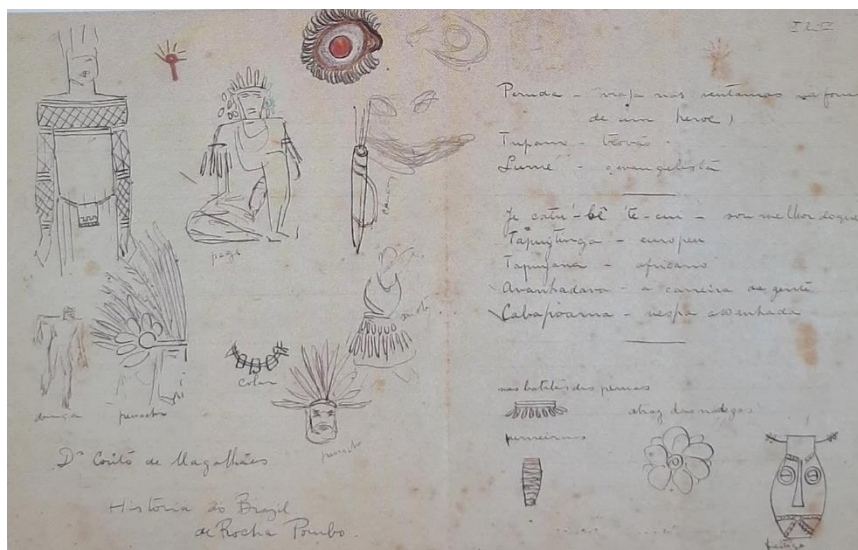 pagé
dança
penacho
colar
Dr Couto de Magalhães
Historia do Brazil
de Rocha Pombo.
Peruda - viaja nas ventanias
de um heroe
Tupam - trovão
Sumé - evangelista
Je catú-bê te-cui - sou melhor do que
Tapuytinga - europeu
Tapuyana - africano
Avanhadava - a carreira da gente
Cabapoama - vespa assanhada
nas batatas das pernas
atraz das nadegas
perneiras